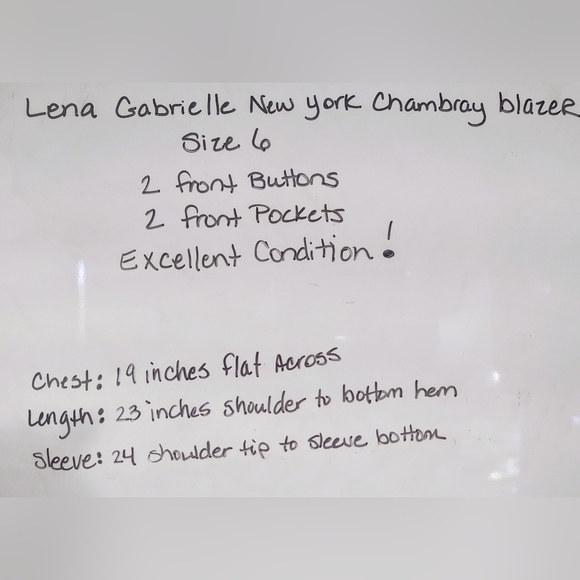 Lena Gabrielle New York Chambray blazer
Size 6
2 front Buttons
2 front Pockets
Excellent Condition!
Chest: 19 inches flat Across
Length: 23 inches shoulder to bottom hem
Sleeve: 24 shoulder tip to sleeve bottom